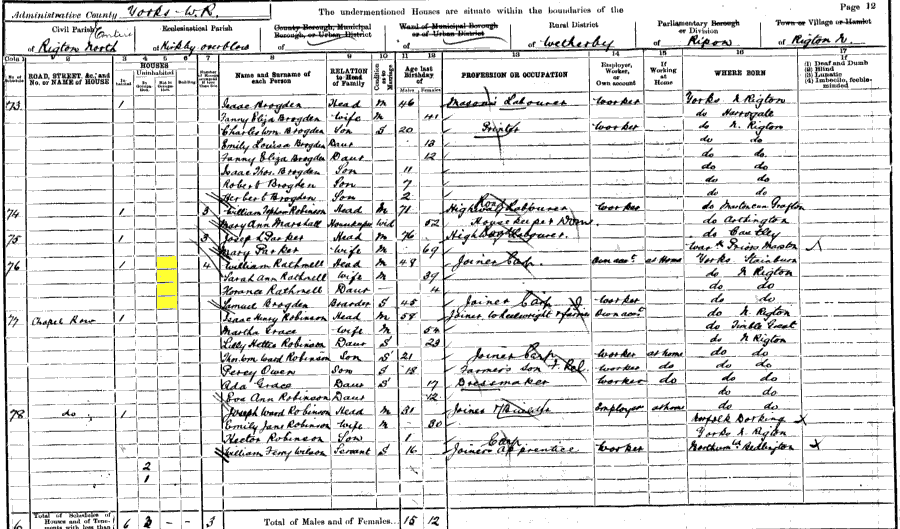 Administrative County Yorks - W.R. The undermentioned Houses are situate within the boundaries of the Page 12
Civil Parish (Entire) Ecclesiastical Parish County Borough, Municipal Borough, or Urban District Ward of Municipal Borough or of Urban District Rural District Parliamentary Borough or Division Town or Village or Hamlet
of Rigton North of Kirkby overblow of of of Wetherby of Ripon of Rigton N.
Cols. 1 2 3 4 5 6 7 8 9 10 11 12 13 14 15 16 17
No. of Schedule ROAD, STREET, &c., and No. or NAME of HOUSE HOUSES Uninhabited Name and Surname of each Person RELATION to Head of Family Condition as to Marriage Age last Birthday Males Females PROFESSION OR OCCUPATION Employer, Worker, or Own account If Working at Home WHERE BORN If (1) Deaf and Dumb (2) Blind (3) Lunatic (4) Imbecile, feeble-minded
73 1 Isaac Brogden Head M 46 Mason's Labourer Worker Yorks N. Rigton
Fanny Eliza Brogden Wife M 41 do Harrogate
Charles Wm. Brogden Son S 20 Printer Worker do N. Rigton
Emily Louisa Brogden Daur 13 do do
Fanny Eliza Brogden Daur 12 do do
Isaac Thos. Brogden Son 11 do do
Robert Brogden Son 7 do do
Herbert Brogden Son 2 do do
74 1 3 William Robinson Head M 71 Highway Labourer Worker do Grafton
Mary Ann Marshall Housekeeper Wid 52 Housekeeper Dom. do Arthington
75 1 3 Joseph Parker Head M 76 Highway Labourer do Castley
Mary Parker Wife M 69 Priors Marston
76 1 4 William Rathmell Head M 48 Joiner Carp. Own acct. at Home Yorks Stainburn
Sarah Ann Rathmell Wife M 39 do N Rigton
Florance Rathmell Daur 4 do do
Samuel Brogden Boarder S 45 Joiner Carp Worker do do
77 Chapel Row 1 Isaac Robinson Head M 58 Joiner Wheelwright & farmer Own acct. do N. Rigton
Martha Grace Wife M 54 do Timble Great
Lilly Hettie Robinson Daur S 23 do N Rigton
Thos. Wm. Ward Robinson Son S 21 Joiner Carp Worker at home do do
Percy Owen Son S 18 Farmer's Son Worker do do do
Ada Grace Daur S 17 Dressmaker Worker do do do
Eva Ann Robinson Daur 12 do do
78 do 1 Joseph Ward Robinson Head M 31 Joiner Employer at home do do
Emily Jane Robinson Wife M 30 Norfolk
Hector Robinson Son 1 Yorks N. Rigton
William Wilson Servant S 16 Joiners Apprentice Carp Worker Bedlington
2
1
6 Total of Schedules of Houses and of Tenements with less than 6 2 - - 3 Total of Males and of Females... 15 12